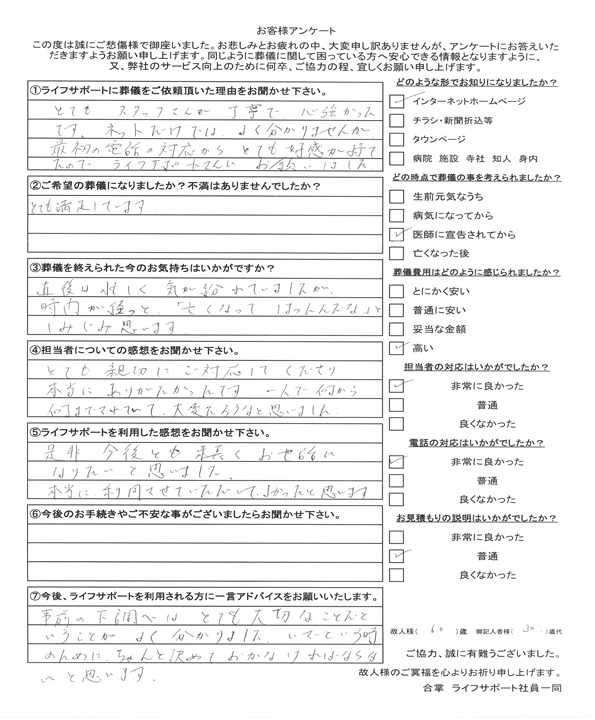 お客様アンケート
この度は誠にご愁傷様で御座いました。お悲しみとお疲れの中、大変申し訳ありませんが、アンケートにお答えいた
だきますようお願い申し上げます。同じように葬儀に関して困っている方へ安心できる情報となりますように、
又、弊社のサービス向上のために何卒、ご協力の程、宜しくお願い申し上げます。
①ライフサポートに葬儀をご依頼頂いた理由をお聞かせ下さい。
とても スタッフさんが 丁寧で 心強かった
です。ネットだけでは、よく分かりませんが
最初の電話の対応から とても好感が持て
たので ライフサポートさんに お願いしました
②ご希望の葬儀になりましたか？不満はありませんでしたか？
とても満足しています
③葬儀を終えられた今のお気持ちはいかがですか？
直後は忙しく、気が紛れていましたが、
時間が経つと、「亡くなって しまったんだな」と
しみじみ思います
④担当者についての感想をお聞かせ下さい。
とても 親切に ご対応して くださり
本当に ありがたかったです 一人で何から
何までされていて、大変だろうなと思いました
⑤ライフサポートを利用した感想をお聞かせ下さい。
是非 今後とも 末長く お世話に
なりたいと思いました。
本当に、利用させていただいて、よかったと思います
⑥今後のお手続きやご不安な事がございましたらお聞かせ下さい。
⑦今後、ライフサポートを利用される方に一言アドバイスをお願いいたします。
事前の下調べは とても大切なことだと
いうことが よく分かりました。いざという時
のために、ちゃんと決めておかなければならな
いと思います。
どのような形でお知りになりましたか？
インターネットホームページ
チラシ・新聞折込等
タウンページ
病院 施設 寺社 知人 身内
どの時点で葬儀の事を考えられましたか？
生前元気なうち
病気になってから
医師に宣告されてから
亡くなった後
葬儀費用はどのように感じられましたか？
とにかく安い
普通に安い
妥当な金額
高い
担当者の対応はいかがでしたか？
非常に良かった
普通
良くなかった
電話の対応はいかがでしたか？
非常に良かった
普通
良くなかった
お見積もりの説明はいかがでしたか？
非常に良かった
普通
良くなかった
故人様（ 60 ）歳 御記入者様（ 30 ）歳代
ご協力、誠に有難うございました。
故人様のご冥福を心よりお祈り申し上げます。
合掌 ライフサポート社員一同